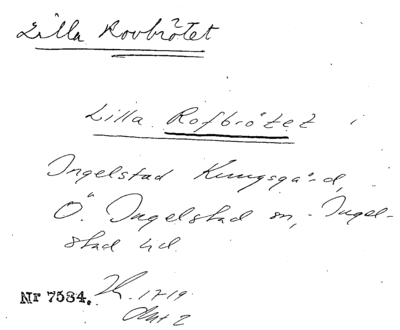 Lilla Rovbrötet
Lilla Rofbrötet i
Ingelstad Kungsgård,
Ö. Ingelstad sn, Ingel-
stad hd
Nr 7584. 1719
Akt 2